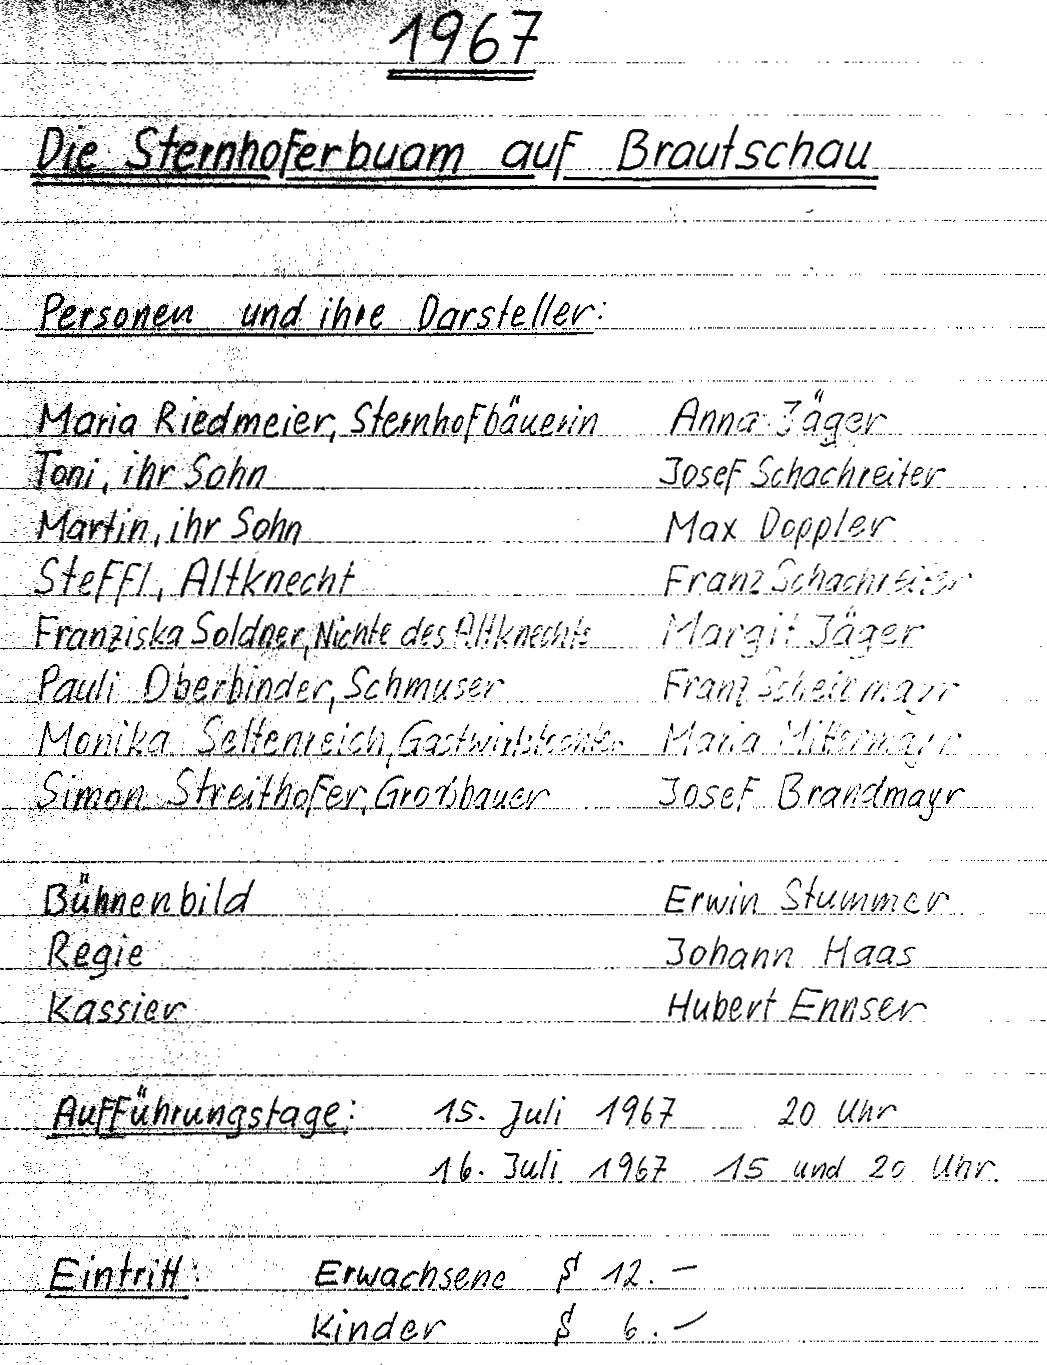 1967
Die Sternhoferbuam auf Brautschau
Personen und ihre Darsteller:
Maria Riedmeier, Sternhofbäuerin Anna Jäger
Toni, ihr Sohn Josef Schachreiter
Martin, ihr Sohn Max Doppler
Steffl, Altknecht Franz Schachreiter
Franziska Soldner, Nichte des Altknechts Margit Jäger
Pauli Oberbinder, Schmuser Franz
Monika Seltenreich, Gastwirtstochter Maria Mittermayr
Simon Streithofer, Großbauer Josef Brandmayr
Bühnenbild Erwin Stummer
Regie Johann Haas
Kassier Hubert Ennser
Aufführungstage: 15. Juli 1967 20 Uhr
16. Juli 1967 15 und 20 Uhr.
Eintritt: Erwachsene S 12.-
Kinder S 6.-